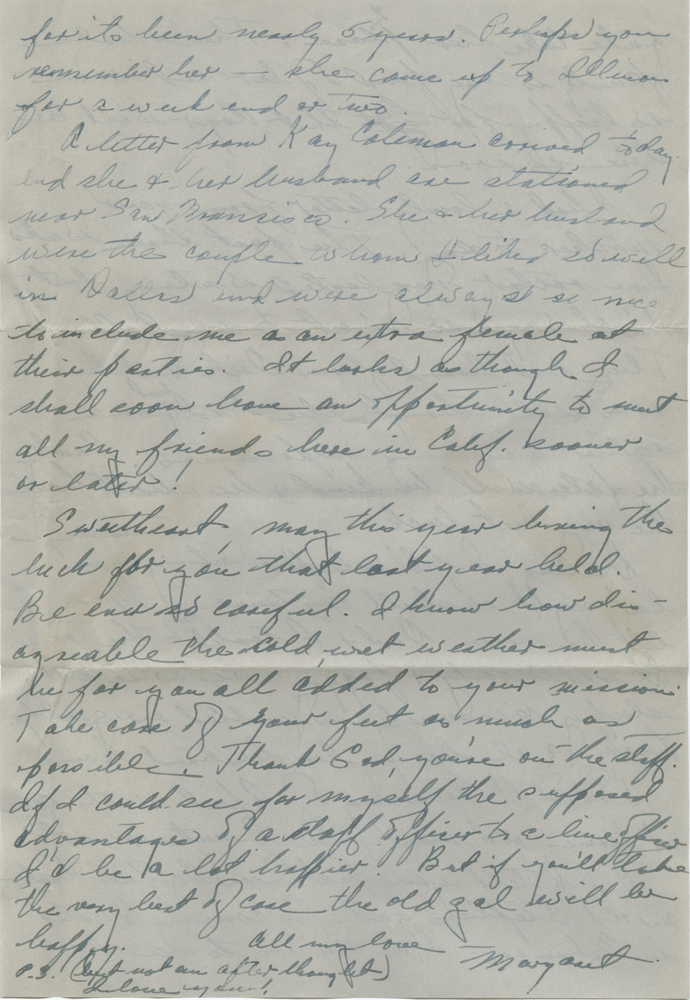 for its been nearly 5 years. Perhaps you
remember her — she came up to Illinois
for a week end or two.
A letter from Kay Coleman arrived today
and she & her husband are stationed
near San Francisco. She & her husband
were the couple whom I liked so well
in Dallas and were always so nice
to include me as an extra female at
their parties. It looks as though I
shall soon have an opportunity to meet
all my friends here in Calif. sooner
or later!
Sweetheart, may this year bring the
luck for you that last year held.
Be ever so careful. I know how dis-
agreeable the cold, wet weather must
be for you all added to your mission.
Take care of your feet as much as
possible. Thank God, you're on the staff.
If I could see for myself the supposed
advantages of a staff officer to a line officer
I'd be a lot happier. But if you'll take
the very best of care the old gal will be
happy. All my love
Margaret
P.S. (but not an after thought)
I love you!